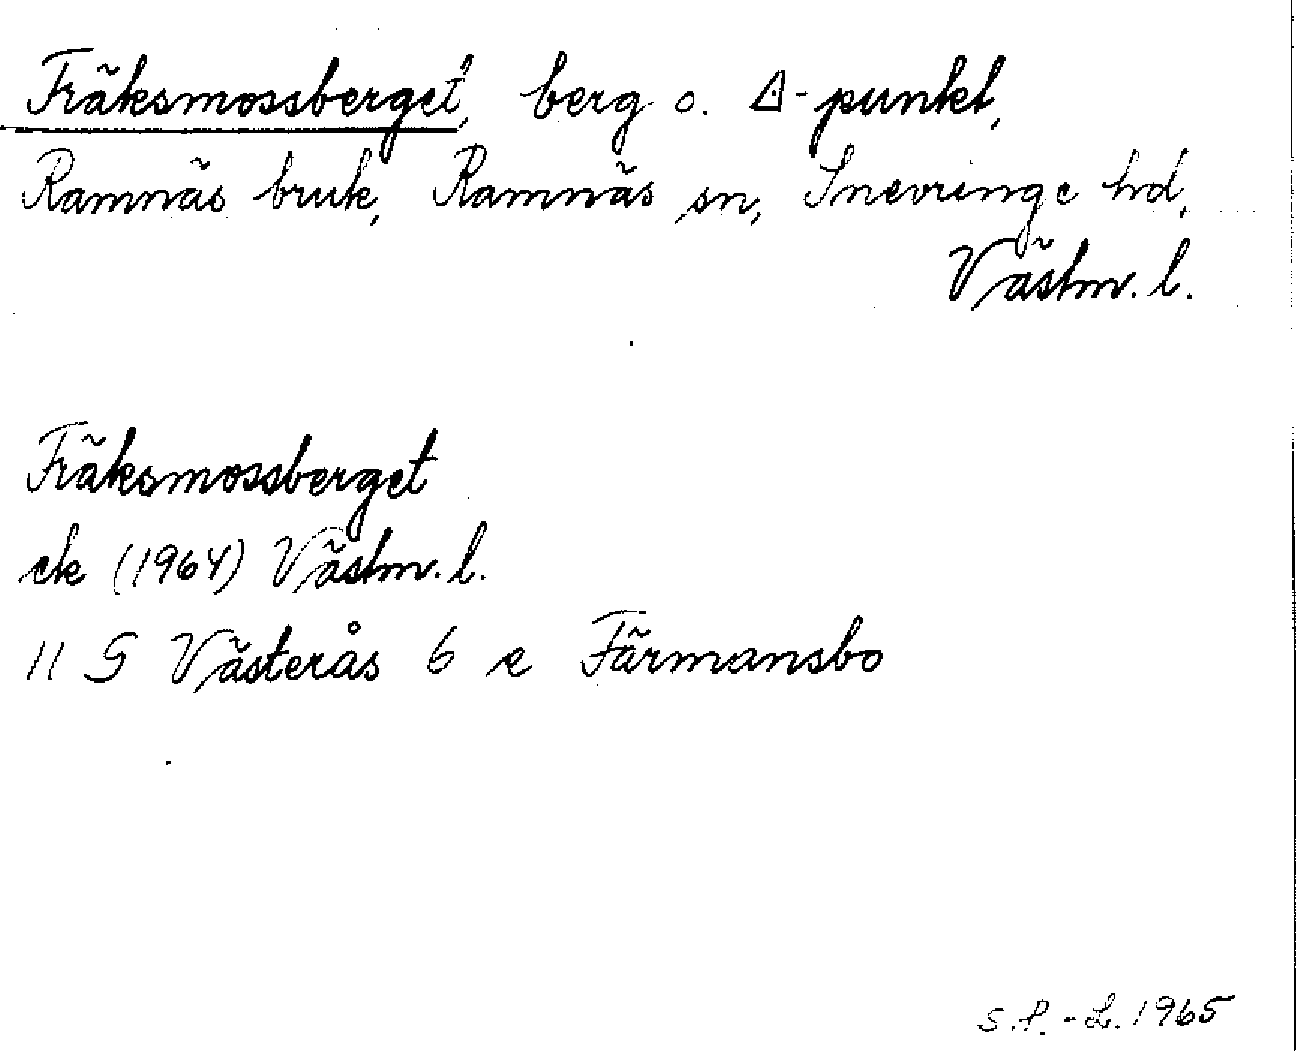 Fräksmossberget, berg o. ⧊-punkt,
Ramnäs bruk, Ramnäs sn, Snevringe hd,
Västm. l.
Fräksmossberget
ek (1964) Västm. l.
11 G Västerås 6 e Färmansbo
S.P.-L. 1965